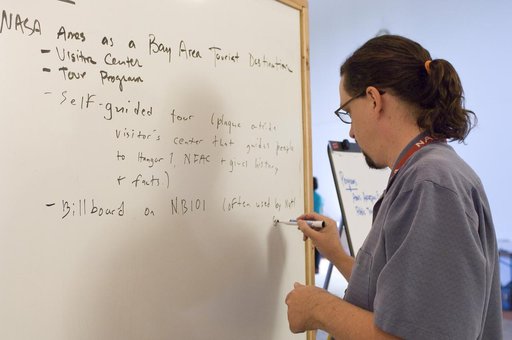 NASA Ames as a Bay Area Tourist Destination
- Visitor Center
- Tour Program
- Self-guided tour (plaque outside
visitor's center that guides people
to Hangar 1, NFAC + gives history
+ facts)
- Billboard on NB101 (often used by
NASA